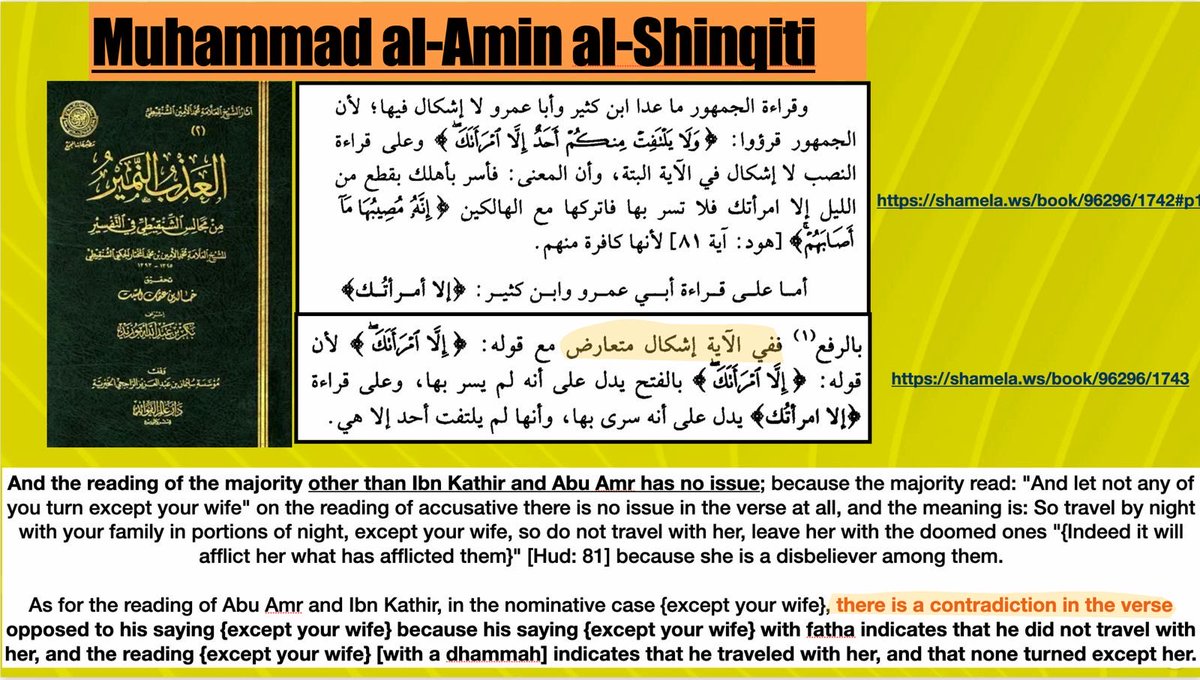 Muhammad al-Amin al-Shinqiti
آثار الشيخ العلامة محمد الأمين الشنقيطي
(٢)
العذب النمير
من مجالس الشنقيطي في التفسير
للشيخ العلامة محمد الأمين بن محمد المختار الجكني الشنقيطي
١٣٢٥ - ١٣٩٣
تحقيق
خالد بن عثمان السبت
إشراف
بكر بن عبد الله أبو زيد
وقف
مؤسسة سليمان بن عبد العزيز الراجحي الخيرية
دار عالم الفوائد
وقراءة الجمهور ما عدا ابن كثير وأبا عمرو لا إشكال فيها؛ لأن
الجمهور قرؤوا: ﴿وَلَا يَلْتَفِتْ مِنكُمْ أَحَدٌ إِلَّا ٱمْرَأَتَكَ﴾ وعلى قراءة
النصب لا إشكال في الآية البتة، وأن المعنى: فأسر بأهلك بقطع من
الليل إلا امرأتك فلا تسر بها فاتركها مع الهالكين ﴿إِنَّهُۥ مُصِيبُهَا مَآ
أَصَابَهُمْ﴾ [هود: آية ٨١] لأنها كافرة منهم.
أما على قراءة أبي عمرو وابن كثير: ﴿إلا امرأتُك﴾
بالرفع(١) ففي الآية إشكال متعارض مع قوله: ﴿إِلَّا ٱمْرَأَتَكَ﴾ لأن
قوله: ﴿إِلَّا ٱمْرَأَتَكَ﴾ بالفتح يدل على أنه لم يسر بها، وعلى قراءة
﴿إلا امرأتُك﴾ يدل على أنه سرى بها، وأنها لم يلتفت أحد إلا هي.
https://shamela.ws/book/96296/1742#p1
https://shamela.ws/book/96296/1743
And the reading of the majority other than Ibn Kathir and Abu Amr has no issue; because the majority read: "And let not any of
you turn except your wife" on the reading of accusative there is no issue in the verse at all, and the meaning is: So travel by night
with your family in portions of night, except your wife, so do not travel with her, leave her with the doomed ones "{Indeed it will
afflict her what has afflicted them}" [Hud: 81] because she is a disbeliever among them.
As for the reading of Abu Amr and Ibn Kathir, in the nominative case {except your wife}, there is a contradiction in the verse
opposed to his saying {except your wife} because his saying {except your wife} with fatha indicates that he did not travel with
her, and the reading {except your wife} [with a dhammah] indicates that he traveled with her, and that none turned except her.